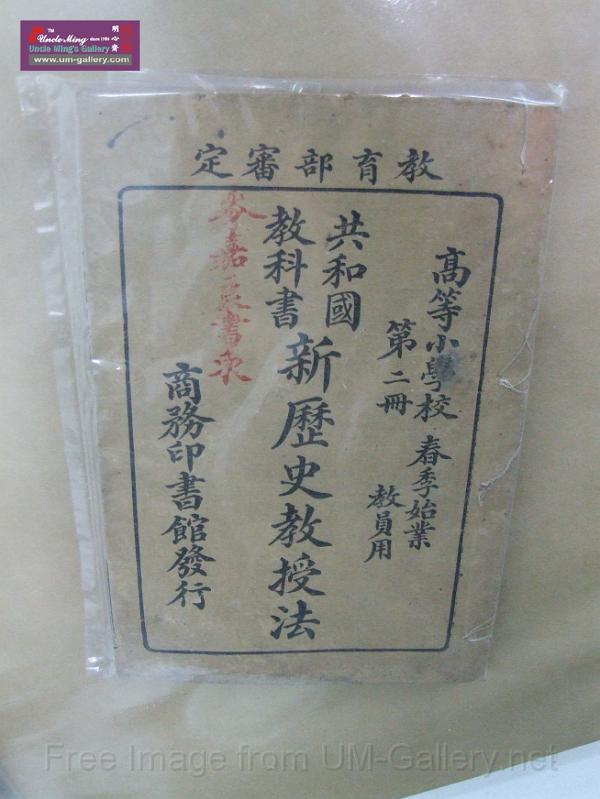 TM
Uncle Ming since 1984
明心齋
Uncle Ming's Gallery
www.um-gallery.com
教育部審定
高等小學校 春季始業
第二冊 教員用
共和國
教科書
新歷史教授法
商務印書館發行
Free Image from UM-Gallery.net